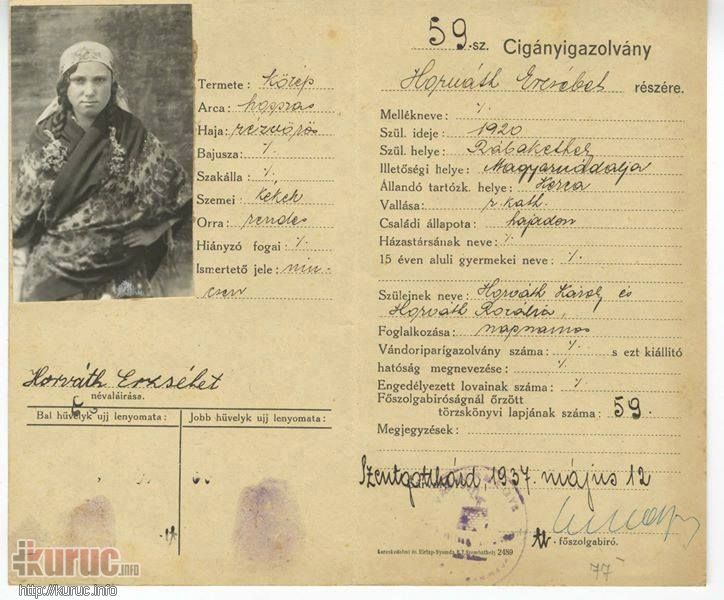 Termete: közép
Arca: hosszas
Haja: rézvörös
Bajusza: ⁒
Szakálla: ⁒
Szemei kékek
Orra: rendes
Hiányzó fogai: ⁒
Ismertető jele: nin-
csen
Horváth Erzsébet
névaláírása.
Bal hüvelyk ujj lenyomata:
Jobb hüvelyk ujj lenyomata:
59. sz. Cigányigazolvány
Horváth Erzsébet részére.
Mellékneve: ⁒
Szül. ideje: 1920
Szül. helye: Rábakethely
Illetőségi helye: Magyarnádalja
Állandó tartózk. helye:
Vallása: r. kath.
Családi állapota: hajadon
Házastársának neve: ⁒
15 éven aluli gyermekei neve: ⁒
Szülejnek neve: Horváth Károly és
Horváth Rozália,
Foglalkozása: napszámos
Vándoriparígazolvány száma: ⁒ s ezt kiállító
hatóság megnevezése: ⁒
Engedélyezett lovainak száma: ⁒
Főszolgabíróságnál őrzött
törzskönyvi lapjának száma: 59.
Megjegyzések:
Szentgotthárd, 1937. május 12
főszolgabíró.
Kereskedelmi és Hirlap-Nyomda R.T. Szombathely 2489
77
kuruc.INFO
http://kuruc.info